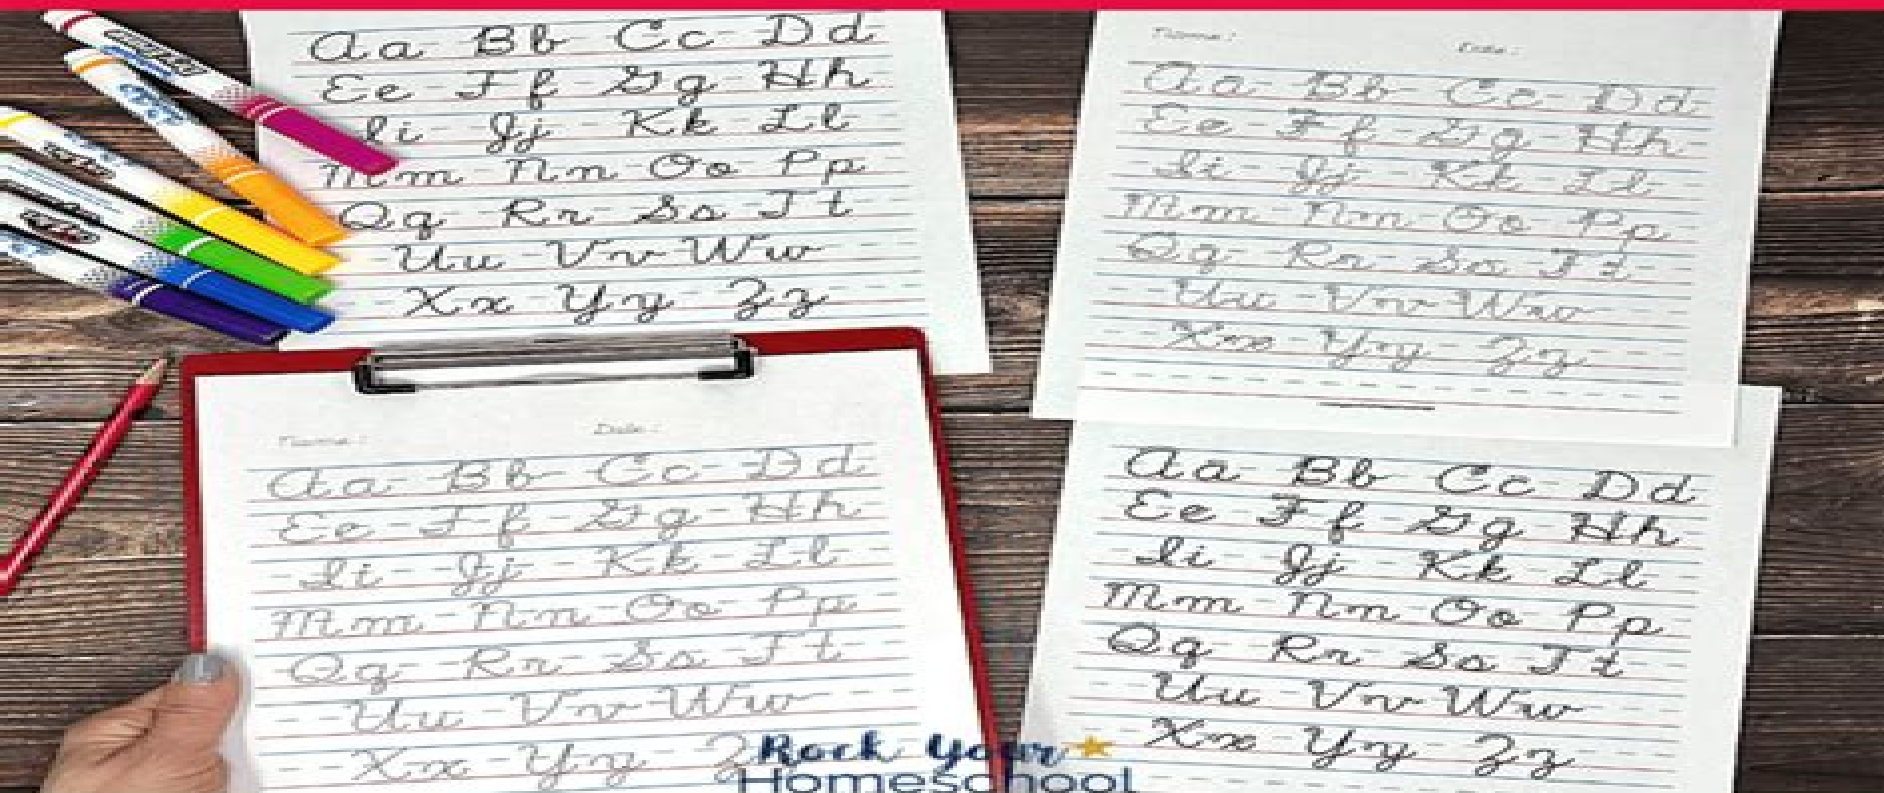 Aa Bb Cc Dd
Ee Ff Gg Hh
Ii Jj Kk Ll
Mm Nn Oo Pp
Qq Rr Ss Tt
Uu Vv Ww
Xx Yy Zz
Name: Date:
Aa Bb Cc Dd
Ee Ff Gg Hh
Ii Jj Kk Ll
Mm Nn Oo Pp
Qq Rr Ss Tt
Uu Vv Ww
Xx Yy Zz
Name: Date:
Aa Bb Cc Dd
Ee Ff Gg Hh
Ii Jj Kk Ll
Mm Nn Oo Pp
Qq Rr Ss Tt
Uu Vv Ww
Xx Yy Z
Aa Bb Cc Dd
Ee Ff Gg Hh
Ii Jj Kk Ll
Mm Nn Oo Pp
Qq Rr Ss Tt
Uu Vv Ww
Xx Yy Zz
Rock Your
Homeschool